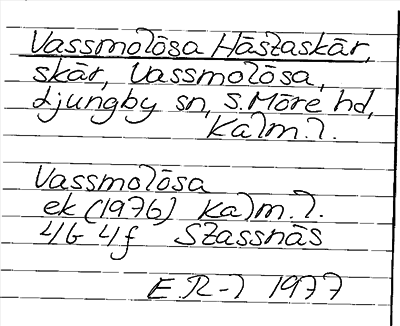 Vassmolösa Hästaskär,
skär, Vassmolösa,
Ljungby sn, S. Möre hd,
Kalm. l.
Vassmolösa
ek (1976) Kalm. l.
4G 4f Stassnäs
E.R-l 1977